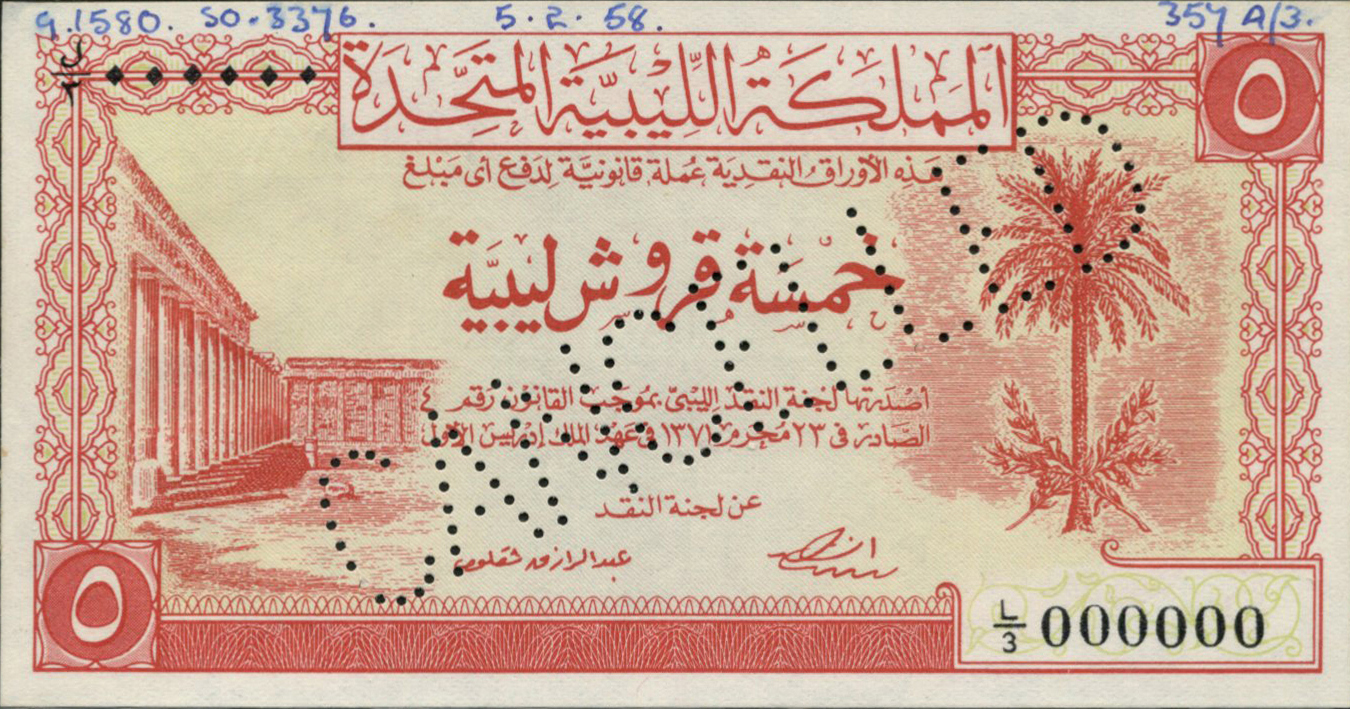 9.1580. SO.3376. 5.2.58. 357 A/3.
ل/٣ ♦♦♦♦♦♦
المملكة الليبية المتحدة
٥
هذه الأوراق النقدية عملة قانونية لدفع أى مبلغ
خمسة قروش ليبية
أصدرتها لجنة النقد الليبى بموجب القانون رقم ٤
الصادر فى ٢٣ محرم ١٣٧١ فى عهد الملك إدريس الأول
عن لجنة النقد
٥
L/3 000000
CANCELLED